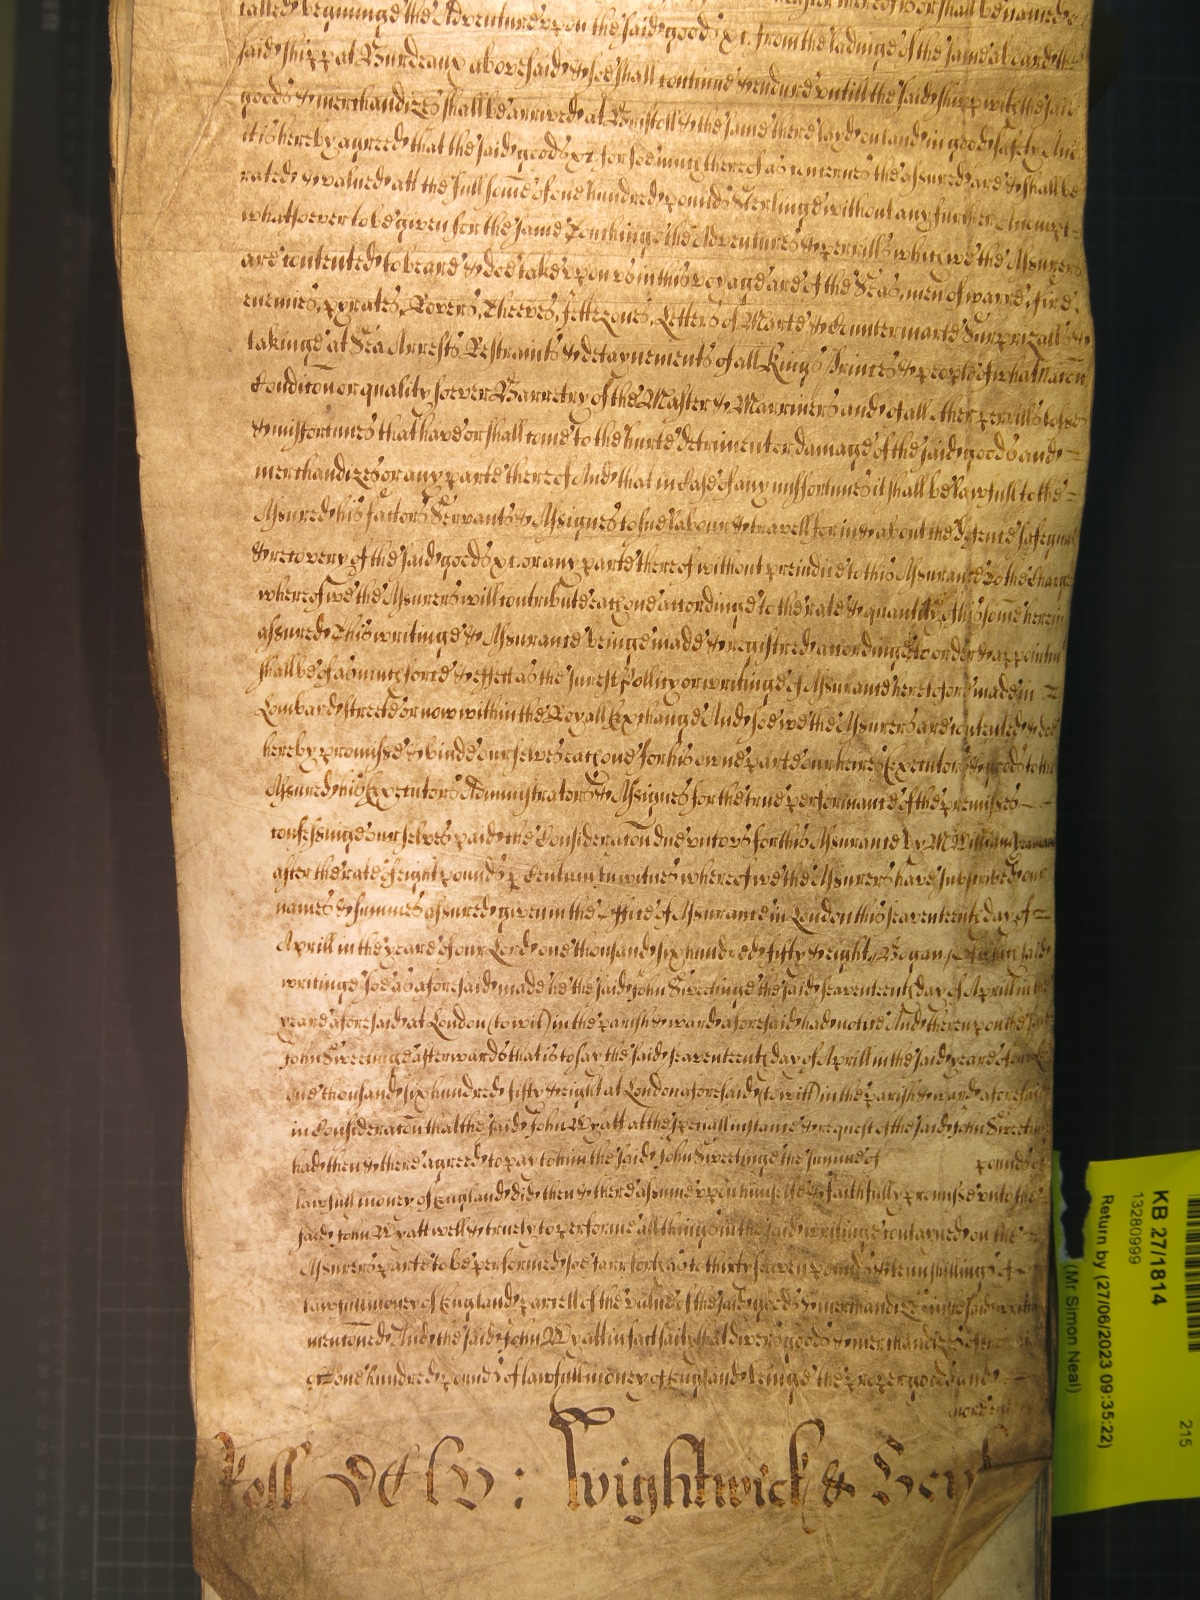 called, beginninge the Adventure upon the said goods &c. from the ladinge of the same aboard the
said shipp at Burdeaux abovesaid & soe shall continue & endure untill the said shipp with the said
goods & merchandizes shall be arrived at Bristoll & the same there layd on land in good safety And
it is hereby agreed that the said goods &c. for soe much thereof as concernes the assured are & shall be
rated & valued att the full some of one hundred pounds sterlinge without any further Accompt
whatsoever to be given for the same Touchinge the Adventures & perrills which we the Assurers
are contented to beare & doe take upon us in this voyage are of the Seas, men of warre, fire,
enemies, pyrates, Rovers, Theeves, Jettezons, Letters of Marte & Countermarte Surprizalls &
takinge at Sea Arrests Restraints & detaynements of all Kings Princes & people of what Nacon
Condicon or quality soever Barretry of the Master & Marriners and of all other perrills losses
& misfortunes that have or shall come to the hurte detriment or damage of the said goods and
merchandizes or any parte thereof And that in Case of any misfortunes it shall be lawfull to the
Assured his factors Servants & Assignes to sue labour & travell for in & about the defence safeguard
& recovery of the said goods &c. or any parte thereof without prejudice to this Assurance To the Charges
whereof we the Assurers will contribute each one accordinge to the rate & quantity of his some herein
assured This writinge & Assurance beinge made & registred accordinge to order & appointmt
shall be of as much force & effect as the surest Pollicy or writinge of Assurance heretofore made in
Lombard streete or now within the Royall Exchange And soe we the Assurers are contented & doe
hereby promisse & binde our selves each one for his owne parte our heires Executors & goods to the
Assured his Executors Administrators & Assignes for the true performance of the premisses
confessinge our selves paid the Consideracon due unto us for this Assurance by Mr William
after the rate of eight pounds p Centum In witnes whereof we the Assurers have subscribed our
names & summes assured given in the Office of Assurance in London this seaventeenth day of
Aprill in the yeare of our Lord one thousand six hundred fifty & eight, said
writinge soe as aforesaid made he the said John Sweetinge the said seaventeenth day of Aprill in the
yeare aforesaid at London (to wit) in the parish & ward aforesaid had notice And thereupon the said
John Sweetinge afterwards that is to say the said seaventeenth day of Aprill in the said yeare of our
one thousand six hundred fifty & eight at London aforesaid (to wit) in the parish & ward aforesaid
in Consideracon that the said John Wyatt at the speciall instance & request of the said John Sweeting
had then & there agreed to pay to him the said John Sweetinge the summe of pounds of
lawfull money of England did then & there assume upon himselfe & faithfully promise unto the
said John Wyatt well & truely to performe all things in the said writinge contayned on the
Assurers parte to be performed soe farr forth as to thirty seaven pounds & tenn shillings of
lawfull money of England parcell of the value of the said goods & merchandizes in the said writinge
menconed And the said John Wyatt in fact saith that divers goods & merchandizes
of one hundred pounds of lawfull money of England beinge the proper goods and
Roll : Wightwick &
KB 27/1814
13280999
Return by (27/06/2023 09:35:22)
(Mr Simon Neal)
215